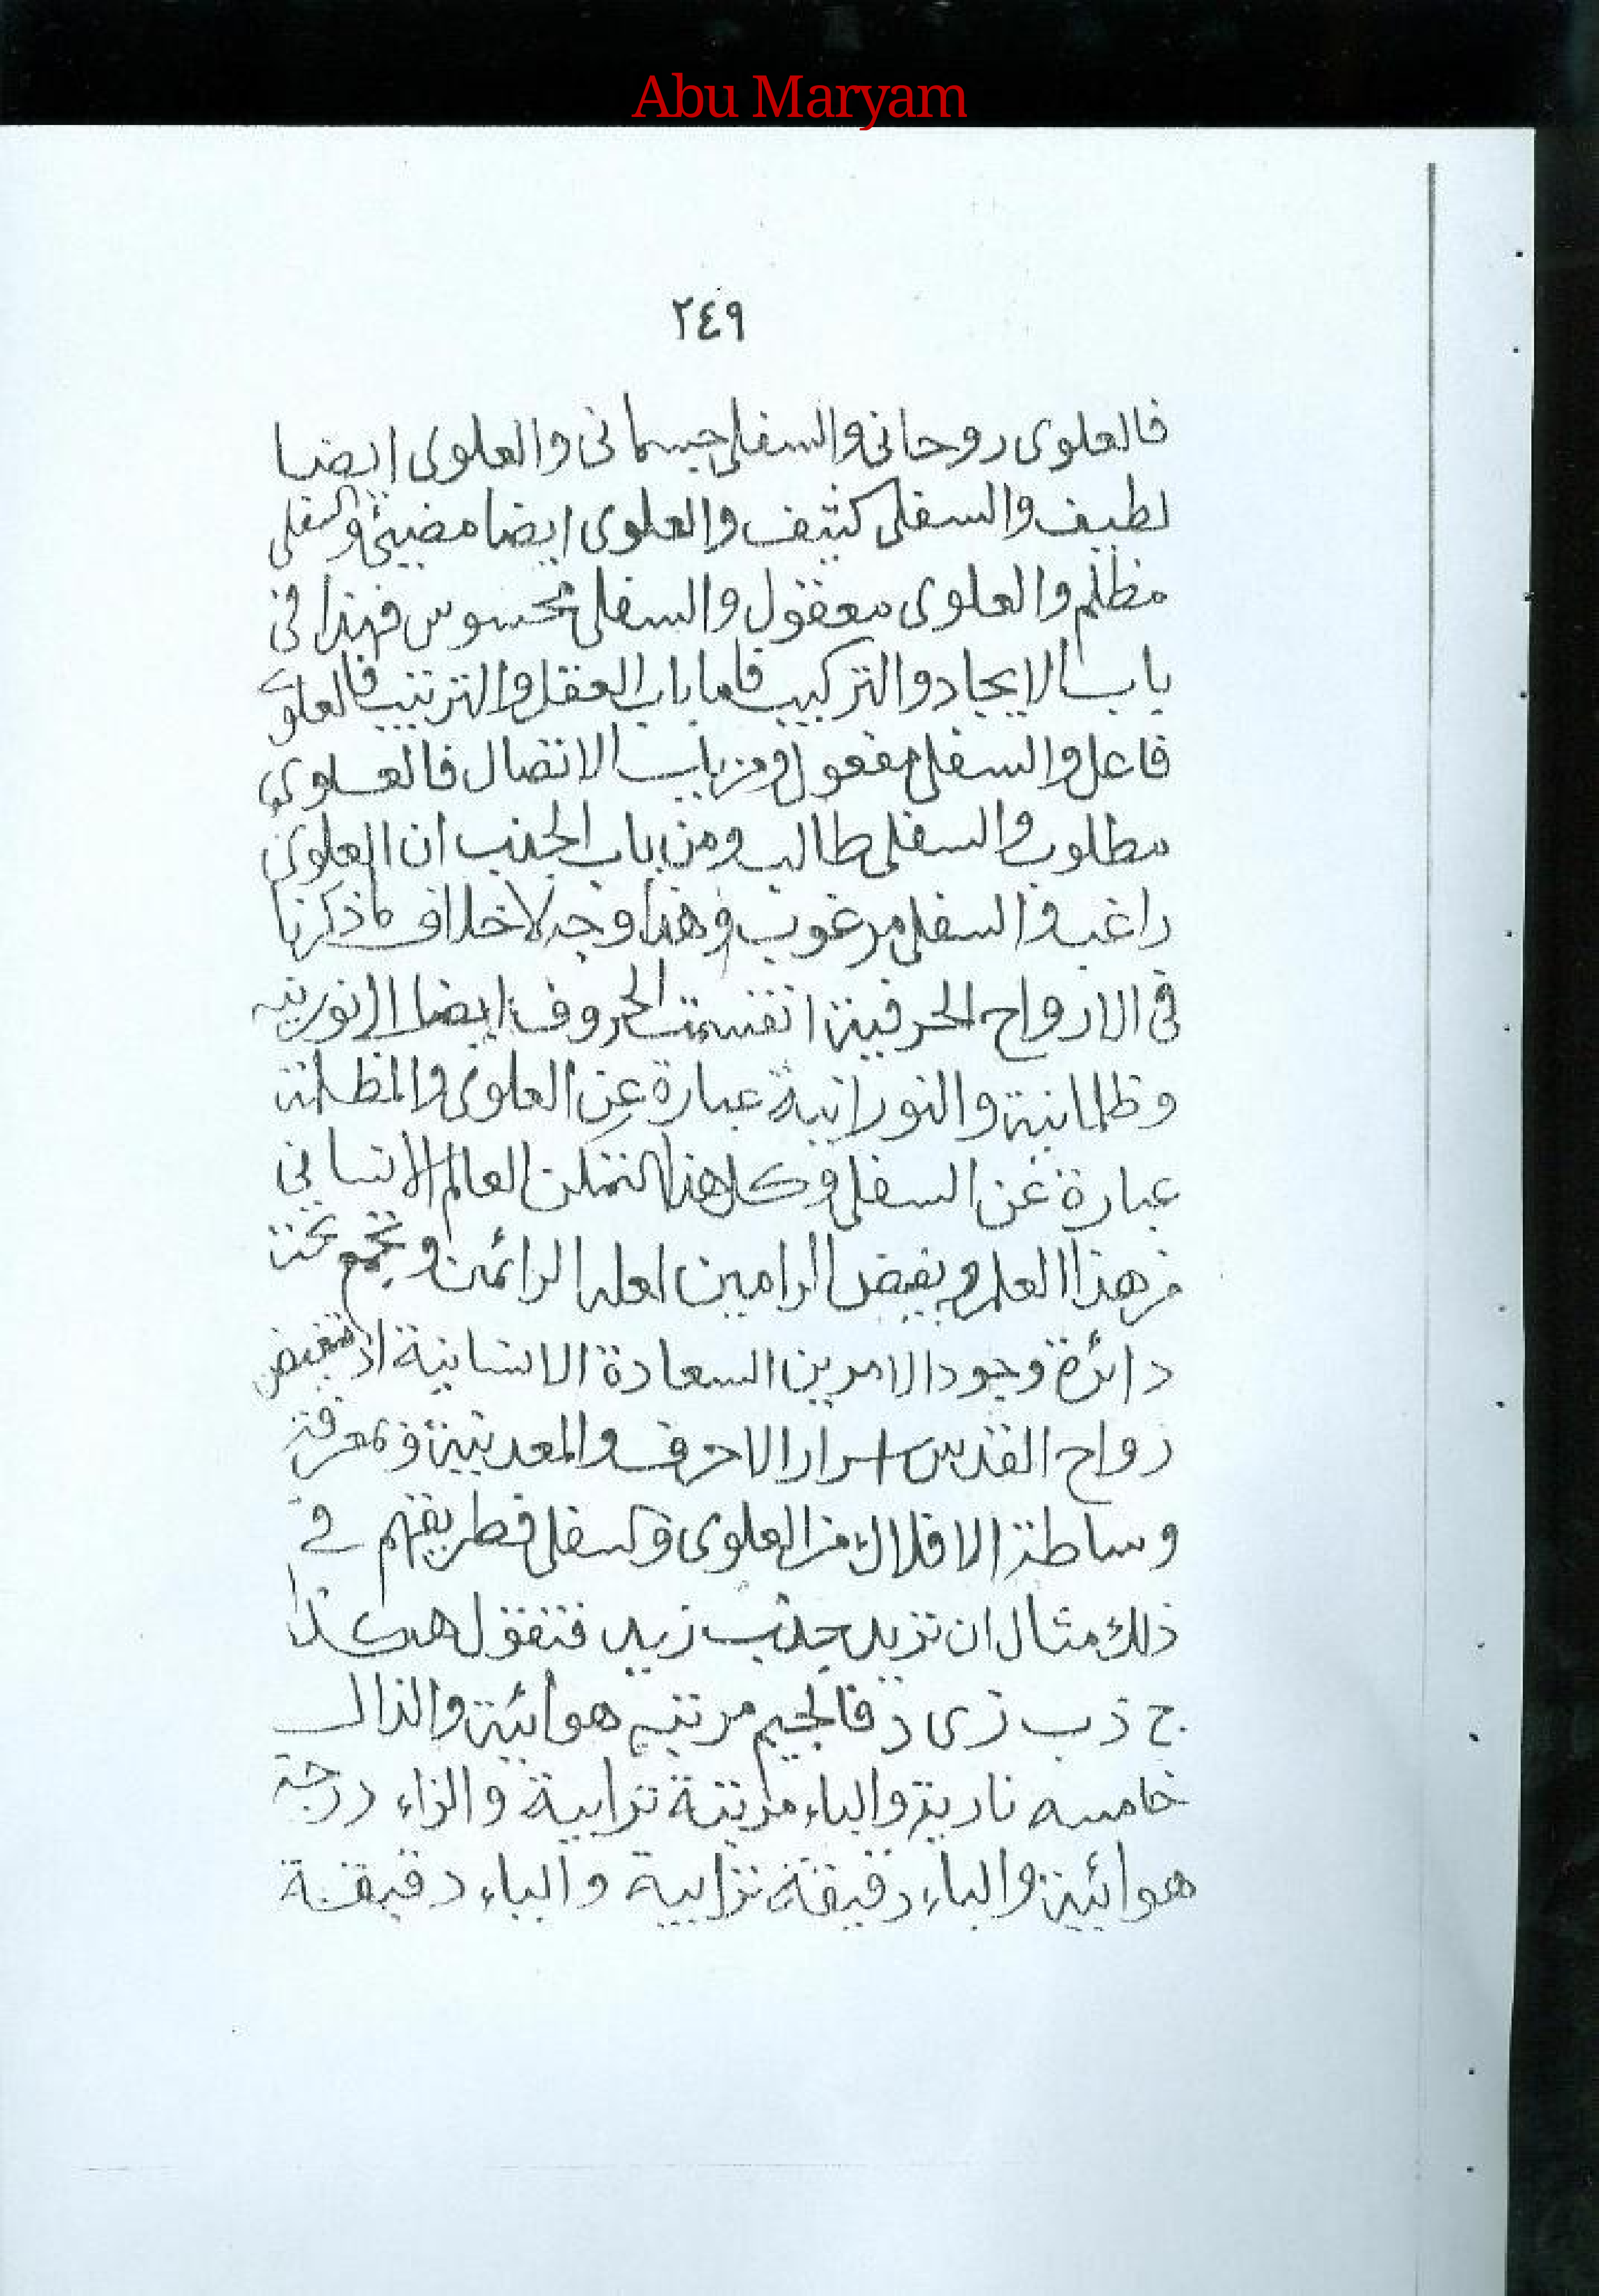 Abu Maryam
٢٤٩
فالعلوى روحانى والسفلى جسمانى والعلوى ايضا
لطيف والسفلى كثيف والعلوى ايضا مضيئ والسفلى
مظلم والعلوى معقول والسفلى محسوس فهذا فى
باب الايجاد والتركيب فاما باب العقل والترتيب فالعلوى
فاعل والسفلى مفعول ومن باب الاتصال فالعلوى
مطلوب والسفلى طالب ومن باب الجذب ان العلوى
راغب والسفلى مرغوب وهذا وجه لاخلاف ماذكرنا
فى الارواح الحرفية انقسمت الحروف ايضا الى نورنيه
وظلمانية والنورانية عبارة عن العلوى والمظلمة
عبارة عن السفلى وكل هذا العالم الانسانى
من هذا العلم الرامين الرائمين وتجمع تحت
دائرة وجود الامرين السعادة الانسانية اذ
زواح القدس اسرار الاحرف والمعدنية وبمعرفة
وساطة الافلاك من العلوى والسفلى فطريقهم فى
ذلك مثال ان تريد جذب زيد فتقول هكذا
ج ذ ب ز ى د فالجيم مرتبه هوائية والذال
خامسه نارية والباء مرتبة ترابية والزاء درجة
هوائية والياء دقيقة ترابية والباء دقيقة